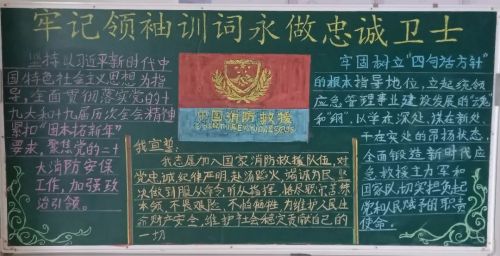 牢记领袖训词永做忠诚卫士
坚持以习近平新时代中
国特色社会主义思想为指
导,全面贯彻落实党的十
九大和十九届历次全会精神
紧扣"固本拓新年"
要求,聚焦党的二十
大消防安保
工作,加强政
治引领。
中国消防救援
我宣誓:
我志愿加入国家消防救援队伍,对
党忠诚,纪律严明,赴汤蹈火,竭诚为民,坚
决做到服从命令,听从指挥,恪尽职守,苦练
本领,不畏艰险,不怕牺牲,为维护人民生
命财产安全,维护社会稳定贡献自己的
一切
牢固树立"四句话方针"
的根本指导地位,立起统领
应急管理事业建设发展的"魂"
和"纲",以学在深处、谋在新处、
干在实处的昂扬状态,
全面锻造新时代应
急救援主力军和
国家队切实担负起
党和人民赋予的职责
使命。